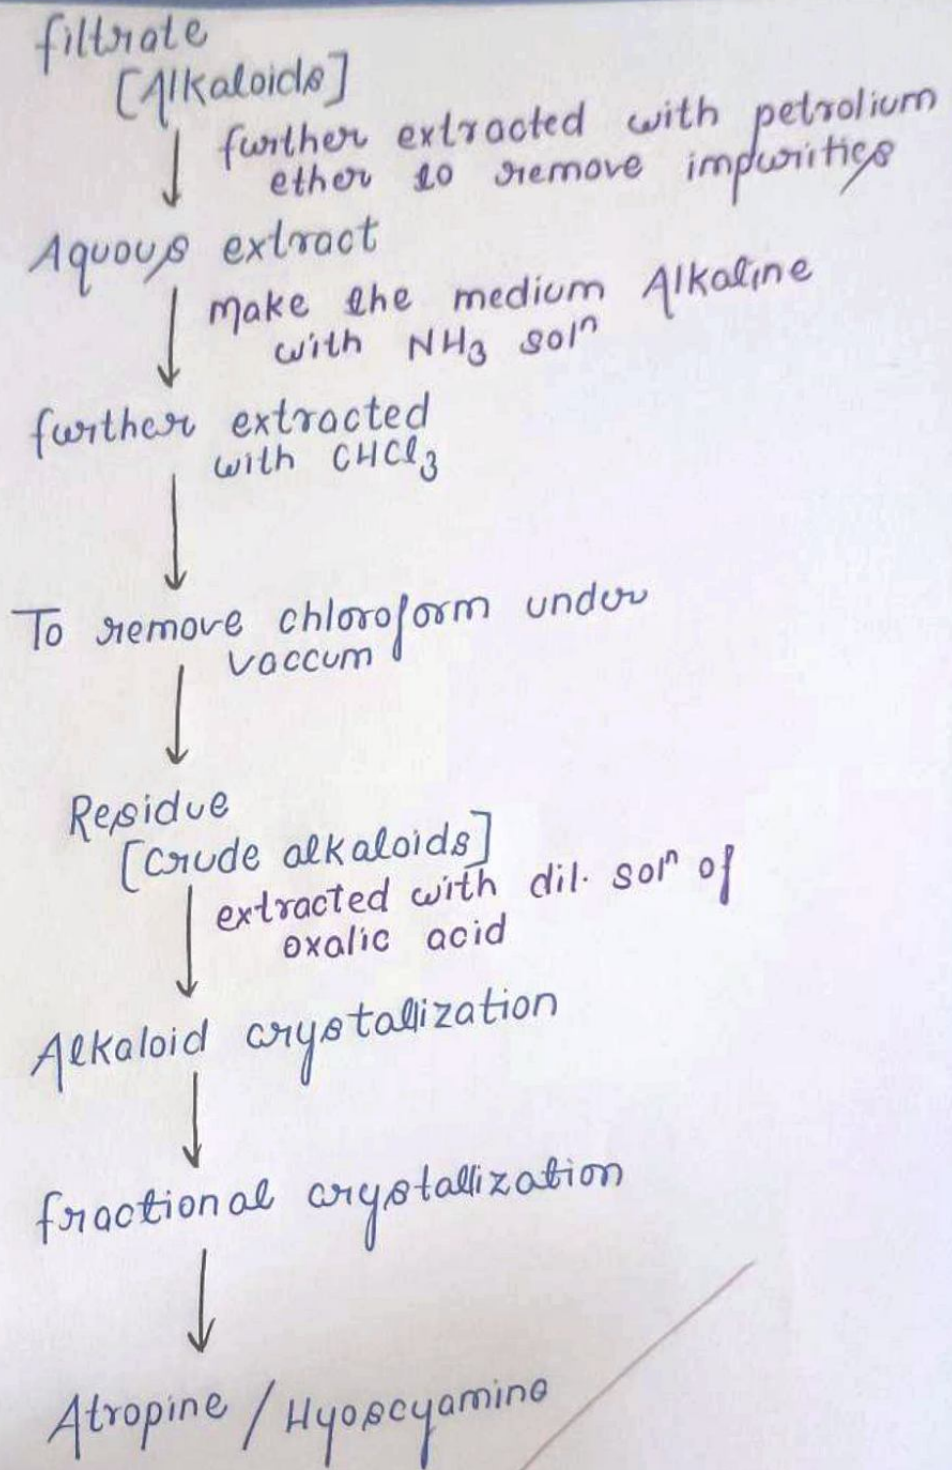 filtrate
[Alkaloids]
further extracted with petrolium
ether to remove impurities
Aquous extract
make the medium Alkaline
with NH3 solⁿ
further extracted
with CHCl3
To remove chloroform under
vaccum
Residue
[crude alkaloids]
extracted with dil. solⁿ of
oxalic acid
Alkaloid crystallization
fractional crystallization
Atropine / Hyoscyamine